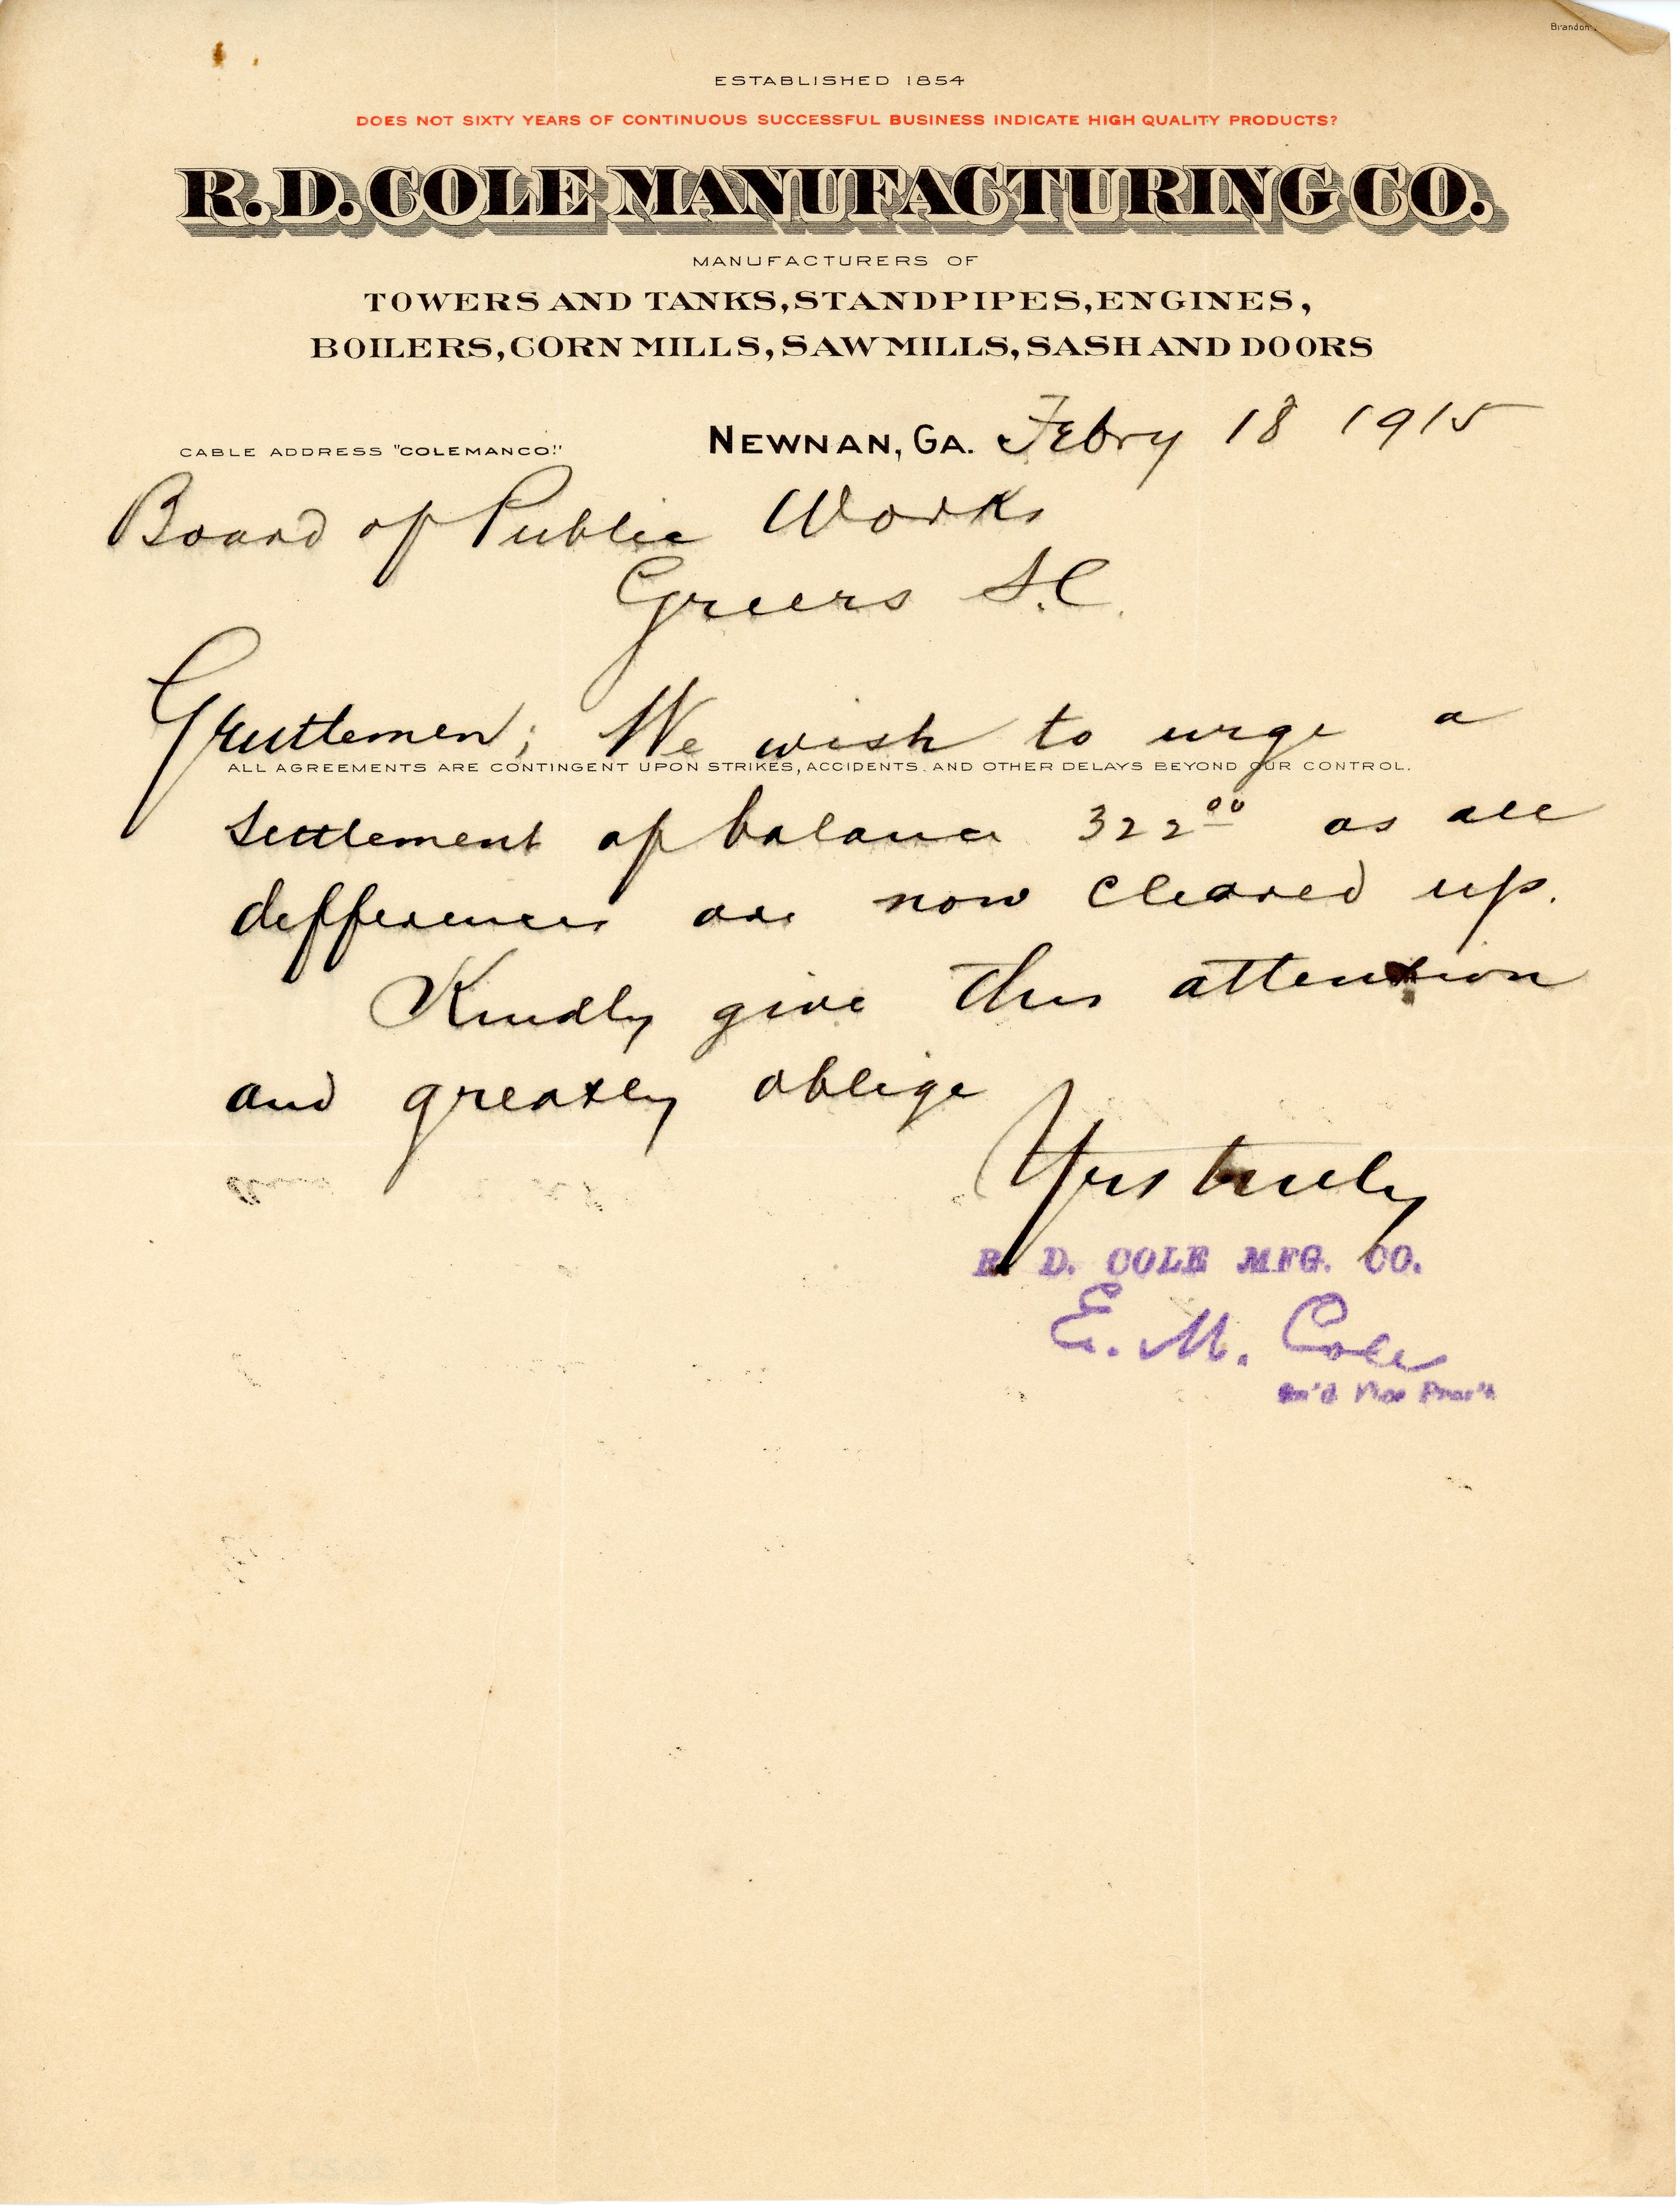 Brandon
ESTABLISHED 1854
DOES NOT SIXTY YEARS OF CONTINUOUS SUCCESSFUL BUSINESS INDICATE HIGH QUALITY PRODUCTS?
R. D. COLE MANUFACTURING CO.
MANUFACTURERS OF
TOWERS AND TANKS, STANDPIPES, ENGINES,
BOILERS, CORN MILLS, SAW MILLS, SASH AND DOORS
CABLE ADDRESS "COLEMANCO."
NEWNAN, GA. Febry 18 1915
Board of Public Works
Greers S.C.
Gentlemen; We wish to urge a
ALL AGREEMENTS ARE CONTINGENT UPON STRIKES, ACCIDENTS, AND OTHER DELAYS BEYOND OUR CONTROL.
settlement of balance 322 00 as all
differences are now cleared up.
Kindly give this attention
and greatly oblige
Yrs truly
R. D. COLE MFG. CO.
E. M. Cole
Vice Pres't